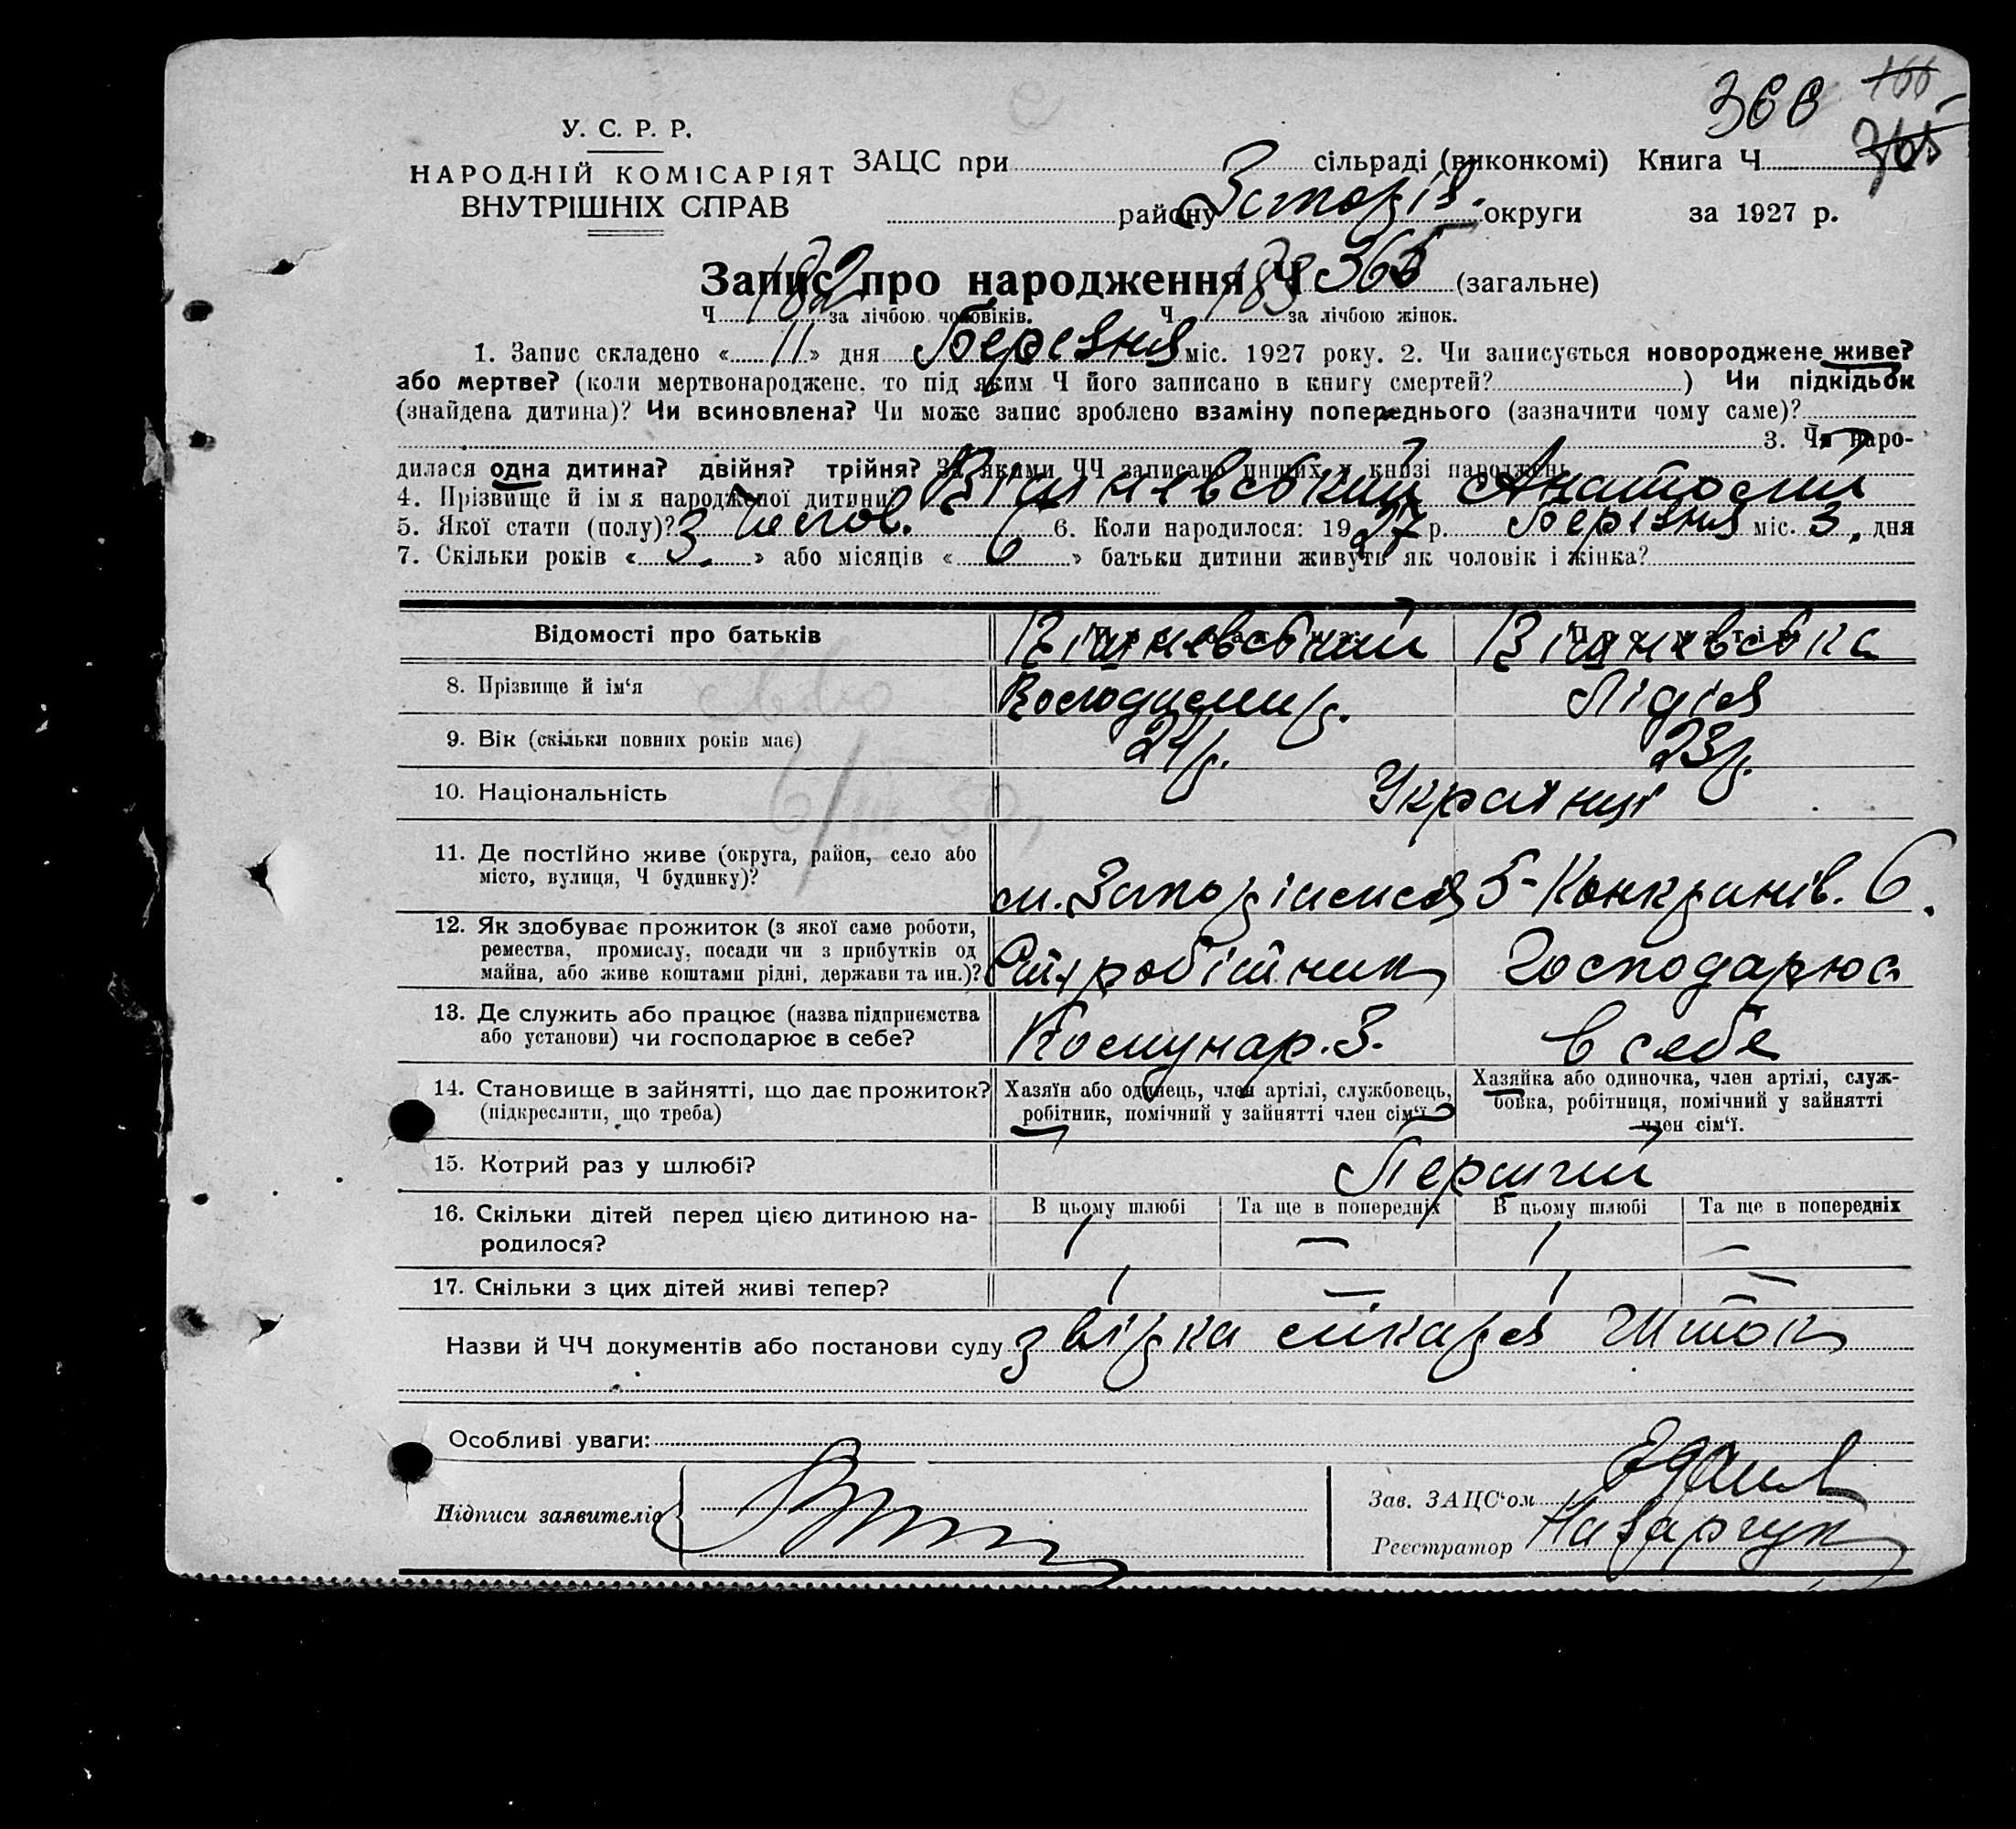 366
У. С. Р. Р.
НАРОДНІЙ КОМІСАРІЯТ
ВНУТРІШНІХ СПРАВ
ЗАЦС при сільраді (виконкомі) Книга Ч
району Запоріз. округи за 1927 р.
Запис про народження Ч 365 (загальне)
Ч 182 за лічбою чоловіків. Ч 183 за лічбою жінок.
1. Запис складено « 11 » дня Березня міс. 1927 року. 2. Чи записується новороджене живе?
або мертве? (коли мертвонароджене, то під яким Ч його записано в книгу смертей? ) Чи підкідьок
(знайдена дитина)? Чи всиновлена? Чи може запис зроблено взаміну попереднього (зазначити чому саме)?
3. Чи наро-
дилася одна дитина? двійня? трійня? За якими ЧЧ записано инших у книзі народжень
4. Прізвище й ім'я народженої дитини? Вішневський Анатолій
5. Якої стати (полу)? Чолов. 6. Коли народилося: 1927 р. Березня міс. 3 дня
7. Скільки років « 3 » або місяців « 6 » батьки дитини живуть як чоловік і жінка?
Відомості про батьків Вішневський Вішневська
8. Прізвище й ім'я Володимир. Лідія
9. Вік (скільки повних років має) 24 р. 23 р.
10. Національність Українці
11. Де постійно живе (округа, район, село або
місто, вулиця, Ч будинку)? м. Запоріжжя 6.
12. Як здобуває прожиток (з якої саме роботи,
ремества, промислу, посади чи з прибутків од
майна, або живе коштами рідні, держави та ин.)? робітник Господарює
13. Де служить або працює (назва підприємства
або установи) чи господарює в себе? Комунар. З. в себе
14. Становище в зайнятті, що дає прожиток?
(підкреслити, що треба)
Хазяїн або одинець, член артілі, службовець,
робітник, помічний у зайнятті член сім'ї
Хазяйка або одиночка, член артілі, служ-
бовка, робітниця, помічний у зайнятті
член сім'ї.
15. Котрий раз у шлюбі? Перший
16. Скільки дітей перед цією дитиною на-
родилося?
В цьому шлюбі Та ще в попередніх В цьому шлюбі Та ще в попередніх
1 — 1 —
17. Скільки з цих дітей живі тепер? 1 — 1 —
Назви й ЧЧ документів або постанови суду лікаря Шток
Особливі уваги:
Підписи заявителів
Зав. ЗАЦС'ом
Реєстратор Назарчук